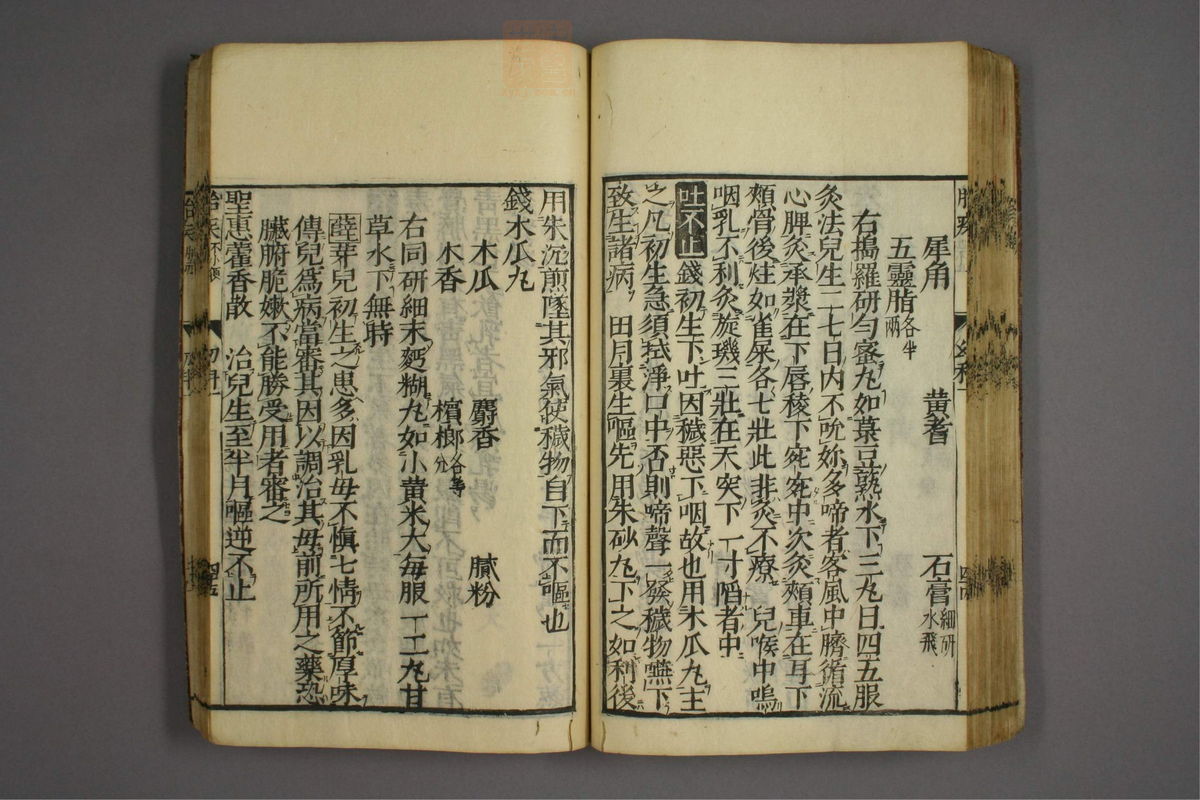 犀角 黄耆 石膏細研水飛
五靈脂各半兩
右搗羅研勻蜜丸如菉豆熟水下三丸日四五服
灸法兒生二七日内不吮妳多啼者客風中臍循流
心脾灸承漿在下唇稜下宛宛中次灸頰車在耳下
頰骨後炷如雀屎各七壯此非灸不療 兒喉中鳴
咽乳不利灸旋璣三壯在天突下一寸陷者中
吐不止 錢初生下吐因穢惡下咽故也用木瓜丸主
之凡初生急須拭淨口中否則啼聲一發穢物嚥下
致生諸病 田月裏生嘔先用朱砂丸下之如利後
用朱沉煎墜其邪氣使穢物自下而不嘔也
錢木瓜丸
木瓜 麝香 膩粉
木香 檳榔各等分
右同研細末麪糊丸如小黄米大每服一二丸甘
草水下無時
薛芽兒初生之患多因乳母不慎七情不節厚味
傳兒爲病當審其因以調治其母前所用之藥恐
臟腑脆嫩不能勝受用者審之
聖惠藿香散 治兒生至半月嘔逆不止